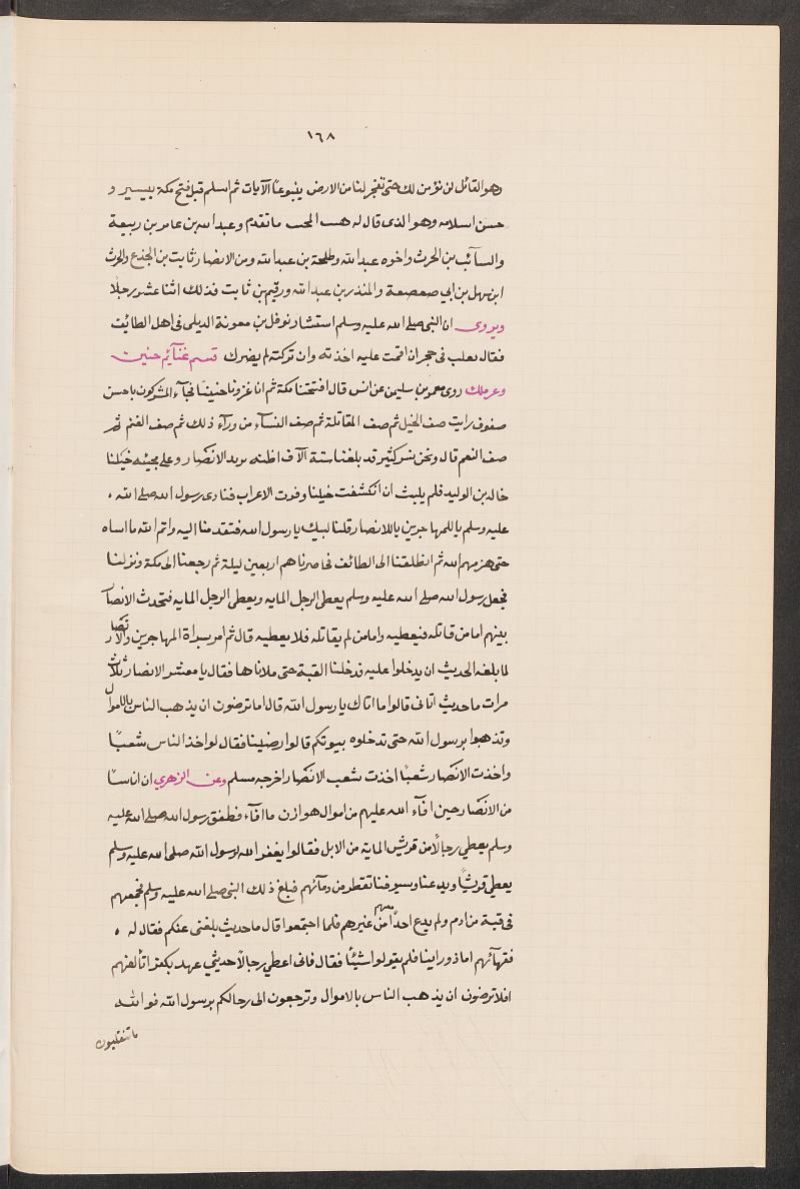 ١٦٨
وهو القائل لن نؤمن لك حتى تفجر لنا من الارض ينبوعًا الآيات ثم اسلم قبل فتح مكة بيسير و
حسن اسلامه وهو الذى قال له هيت المخنث ما تقدم وعبد الله بن عامر بن ربيعة
والسآئب بن الحرث واخوه عبد الله وطلحة بن عبد الله ومن الانصار ثابت بن الجذع والحرث
ابن سهل بن ابي صعصعة والمنذر بن عبد الله ورقيم بن ثابت فذلك اثنا عشر رجلا
ويروى ان النبى صلى الله عليه وسلم استشار نوفل بن معوية الديلى فى اهل الطائف
فقال ثعلب فى حجر ان اقمت عليه اخذته وان تركته لم يضرك قسم غنآئم حنين
روى معمر بن سليمن عن انس قال افتتحنا مكة ثم انا غزونا حنينًا فجآء المشركون باحسن
صفوف رايت صف الخيل ثم صف المقاتلة ثم صف النسآء من ورآء ذلك ثم صف الغنم ثم
صف النعم قال ونحن بشر كثير قد بلغنا ستة آلآف اظنه يريد الانصار وعلى مجنبه خيلنا
خالد بن الوليد فلم يلبث ان انكشفت خيلنا وفرت الاعراب فنادى رسول الله صلى الله
عليه وسلم ياللمهاجرين ياللانصار قلنا لبيك يا رسول الله فتقدمنا اليه وايم الله ما اساه
حتى هزمهم الله ثم انطلقنا الى الطائف فحاصرناهم اربعين ليلة ثم رجعنا الى مكة ونزلنا
فجعل رسول الله صلى الله عليه وسلم يعطى الرجل المايه ويعطى الرجل المايه فتحدث الانصار
بينهم اما من قاتله فيعطيه واما من لم يقاتله فلا يعطيه قال ثم امر بسراة المهاجرين والانصار
لما بلغه الحديث ان يدخلوا عليه فدخلنا القبة حتى ملاناها فقال يا معشر الانصار ثلاث
مرات ما حديث اتانى قالوا ما اتاك يا رسول الله قال اما ترضون ان يذهب الناس بالاموال
وتذهبوا برسول الله حتى تدخلوه بيوتكم قالوا رضينا فقال لو اخذ الناس شعبًا
واخذت الانصار شعبًا اخذت شعب الانصار اخرجه مسلم وعن الزهري ان اناسًا
من الانصار حين افآء الله عليهم من اموال هوازن ما افآء فطفق رسول الله صلى الله عليه
وسلم يعطي رجالًا من قريش الماية من الابل فقالوا يغفر الله لرسول الله صلى الله عليه وسلم
يعطي قريشًا ويدعنا وسيوفنا تقطر من دمآئهم فبلغ ذلك النبى صلى الله عليه وسلم فجمعهم
فى قبة من ادم ولم يدع احدًا منهم من غيرهم فلما اجتمعوا قال ما حديث بلغنى عنكم فقال له
فقهآئهم اما ذو راينا فلم يقولوا شيئًا فقال فانى اعطي رجالًا حديثي عهد بكفر اتألفهم
افلا ترضون ان يذهب الناس بالاموال وترجعون الى رحالكم برسول الله فو الله
ما تنقلبون